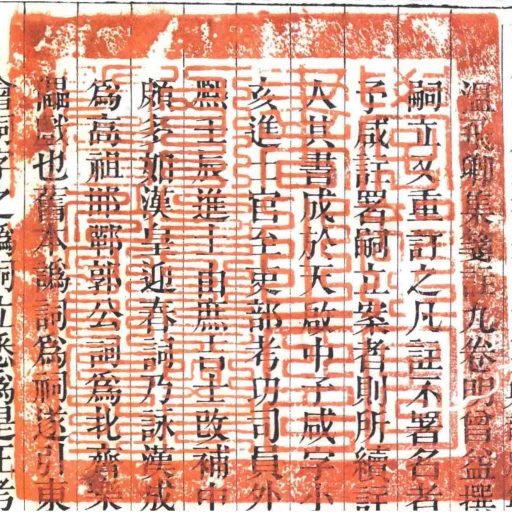 溫飛卿集箋註九卷明曾益撰
嗣立又重訂之凡註不署名者
予咸註署嗣立案者則所續註
人其書成於天啟中予咸字小
亥進士官至吏部考功司員外
熙壬辰進士由庶吉士改補中
頗多如漢皇迎春詞乃詠漢成
爲高祖邯鄲郭公詞爲北齊樂
戲也舊本譌詞爲祠遂引東
之譌嗣立悉爲是正考